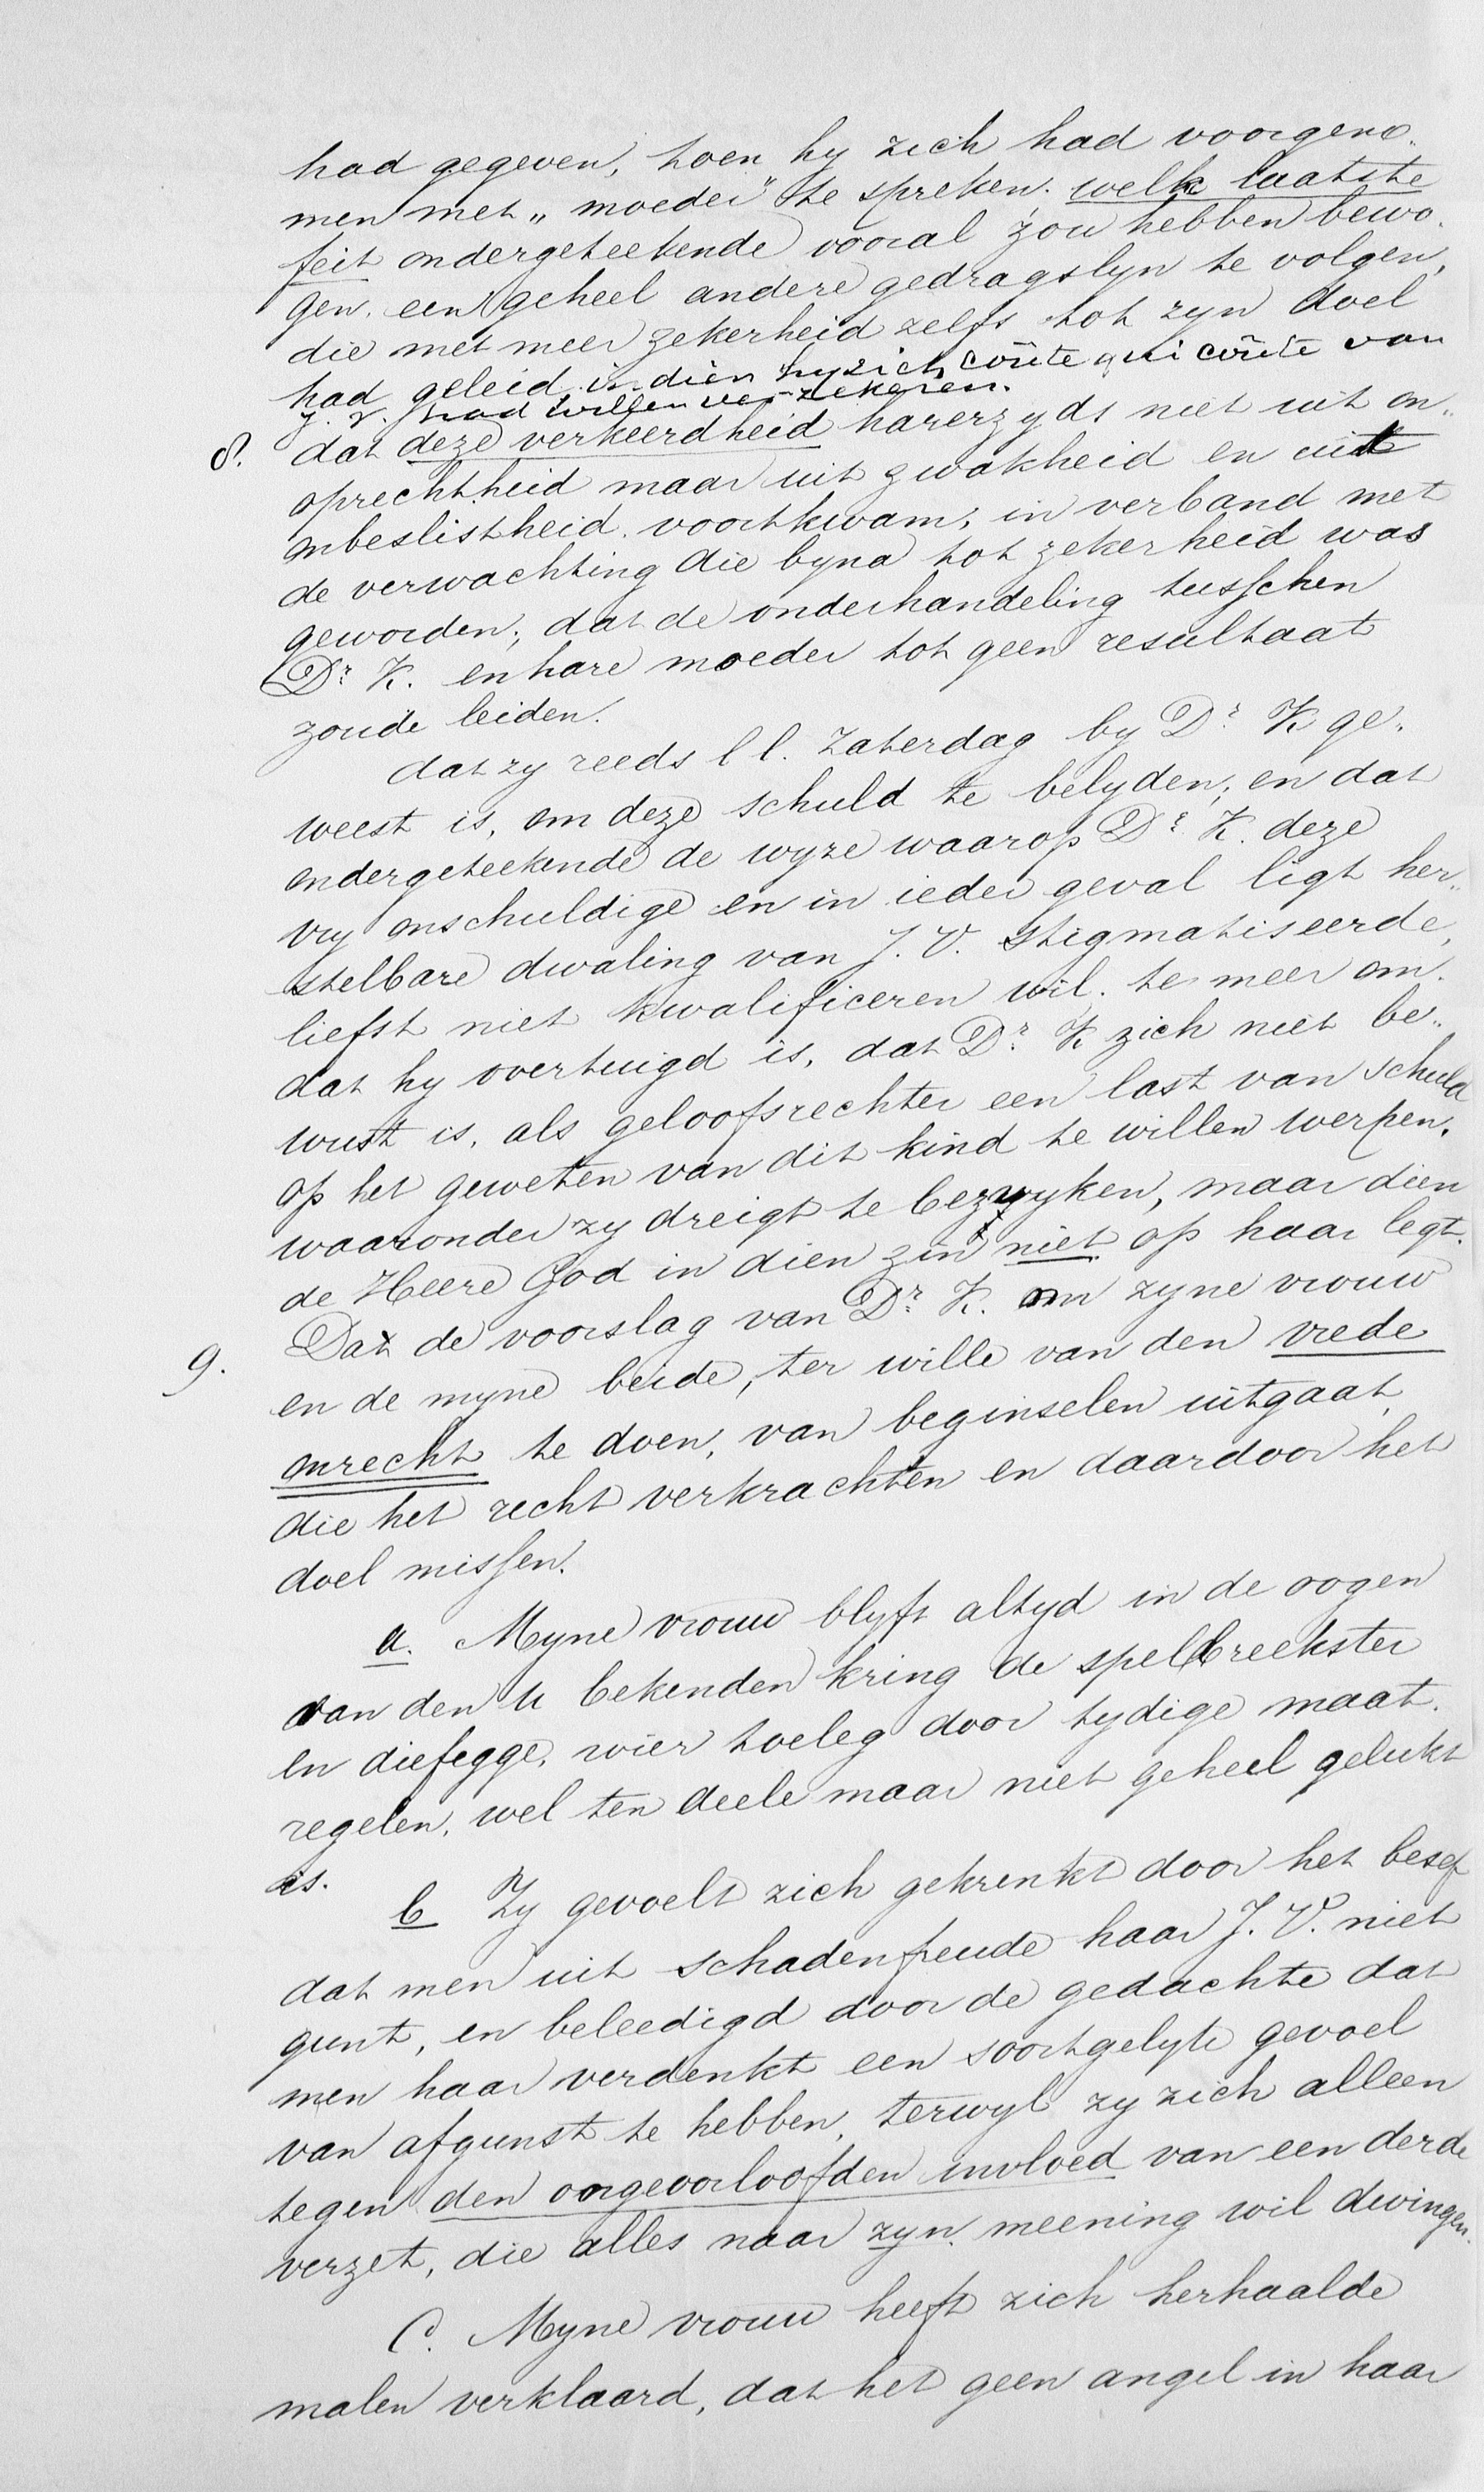 had gegeven, toen hy zich had voorgeno-
men met „moeder" te spreken. welk laatste
feit ondergeteekende vooral zou hebben bewo-
gen, een geheel andere gedragslyn te volgen,
die met meer zekerheid zelfs tot zyn doel
had geleid indien hy zich coûte qui coûte van
J. V. had willen verzekeren.
8. dat deze verkeerdheid harerzyds niet uit on-
oprechtheid maar uit zwakheid en uit
onbeslistheid voortkwam, in verband met
de verwachting die byna tot zekerheid was
geworden; dat de onderhandeling tusschen
Dr. K. en hare moeder tot geen resultaat
zoude leiden.
dat zy reeds l l. Zaterdag by Dr. K ge-
weest is, om deze schuld te belyden, en dat
ondergeteekende de wyze waarop Dr. K. deze
vry onschuldige en in ieder geval ligt her-
stelbare dwaling van J. V. stigmatiseerde,
liefst niet kwalificeren wil. te meer om-
dat hy overtuigd is, dat Dr. K zich niet be-
wust is, als geloofsrechter een last van schuld
op het geweten van dit kind te willen werpen,
waaronder zy dreigt te bezwyken, maar dien
de Heere God in dien zin niet op haar legt.
9. Dat de voorslag van Dr. K. om zyne vrouw
en de myne beide, ter wille van den vrede
onrecht te doen, van beginselen uitgaat,
die het recht verkrachten en daardoor het
doel missen.
a. Myne vrouw blyft altyd in de oogen
van den u bekenden kring de spelbreekster
en diefegge, wier toeleg door tydige maat-
regelen, wel ten deele maar niet geheel gelukt
is.
b Zy gevoelt zich gekrenkt door het besef
dat men uit schadenfreude haar J. V. niet
gunt, en beleedigd door de gedachte dat
men haar verdenkt een soortgelyk gevoel
van afgunst te hebben, terwyl zy zich alleen
tegen den ongeoorloofden invloed van een derde
verzet, die alles naar zyn meening wil dwingen.
C. Myne vrouw heeft zich herhaalde
malen verklaard, dat het geen angel in haar